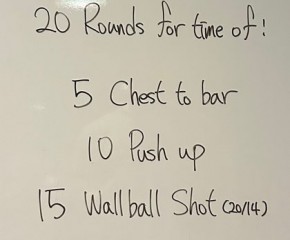 20 Rounds for time of!
5 Chest to bar
10 Push up
15 Wallball Shot (20/14)